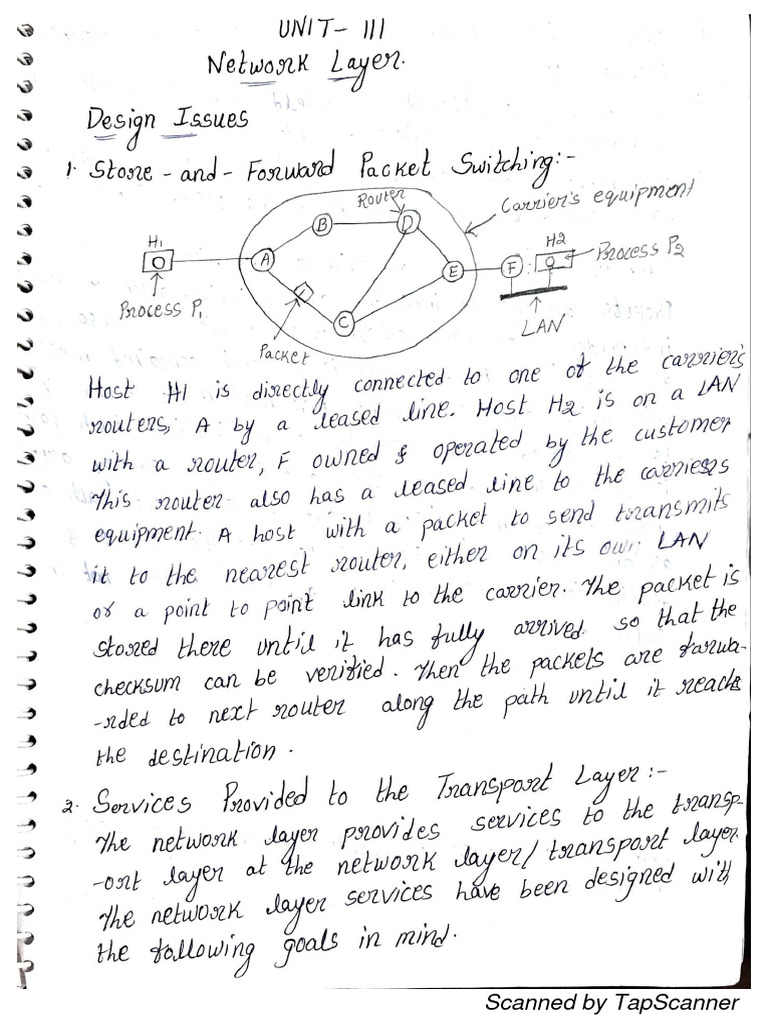 UNIT- III
Network Layer.
Design Issues
1. Store-and-Forward Packet Switching:-
Router
Carrier's equipment
H1
B
D
H2
Process P2
A
E
F
Process P1
C
LAN
Packet
Host H1 is directly connected to one of the carrier's
routers, A by a leased line. Host H2 is on a LAN
with a router, F owned & operated by the customer
This router also has a leased line to the carriers
equipment. A host with a packet to send transmits
it to the nearest router, either on its own LAN
or a point to point link to the carrier. The packet is
stored there until it has fully arrived so that the
checksum can be verified. Then the packets are forwa-
-rded to next router along the path until it reachs
the destination.
2. Services Provided to the Transport Layer:-
The network layer provides services to the transp-
-ort layer at the network layer/transport layer.
The network layer services have been designed with
the following goals in mind.
Scanned by TapScanner